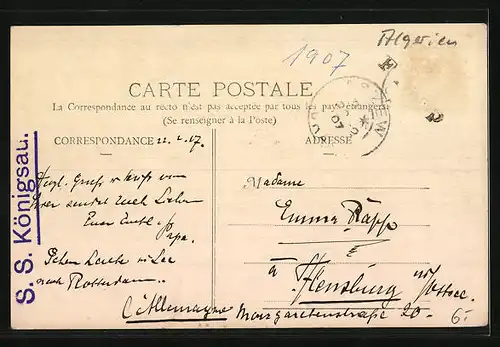 Algerien
1907
CARTE POSTALE
La Correspondance au recto n'est pas acceptée par tous les pays étrangers
(Se renseigner à la Poste)
CORRESPONDANCE 22. 2. 07.
ADRESSE
Herzl. Gruß u. Kuß von
sendet Euch Lieben
Euer Papa.
Gehen heute in See
nach Rotterdam.
S. S. Königsau.
Madame
Emma Rapp
à Flensburg a/Ostsee.
L'Allemagne Margaretenstraße 20.
6.-